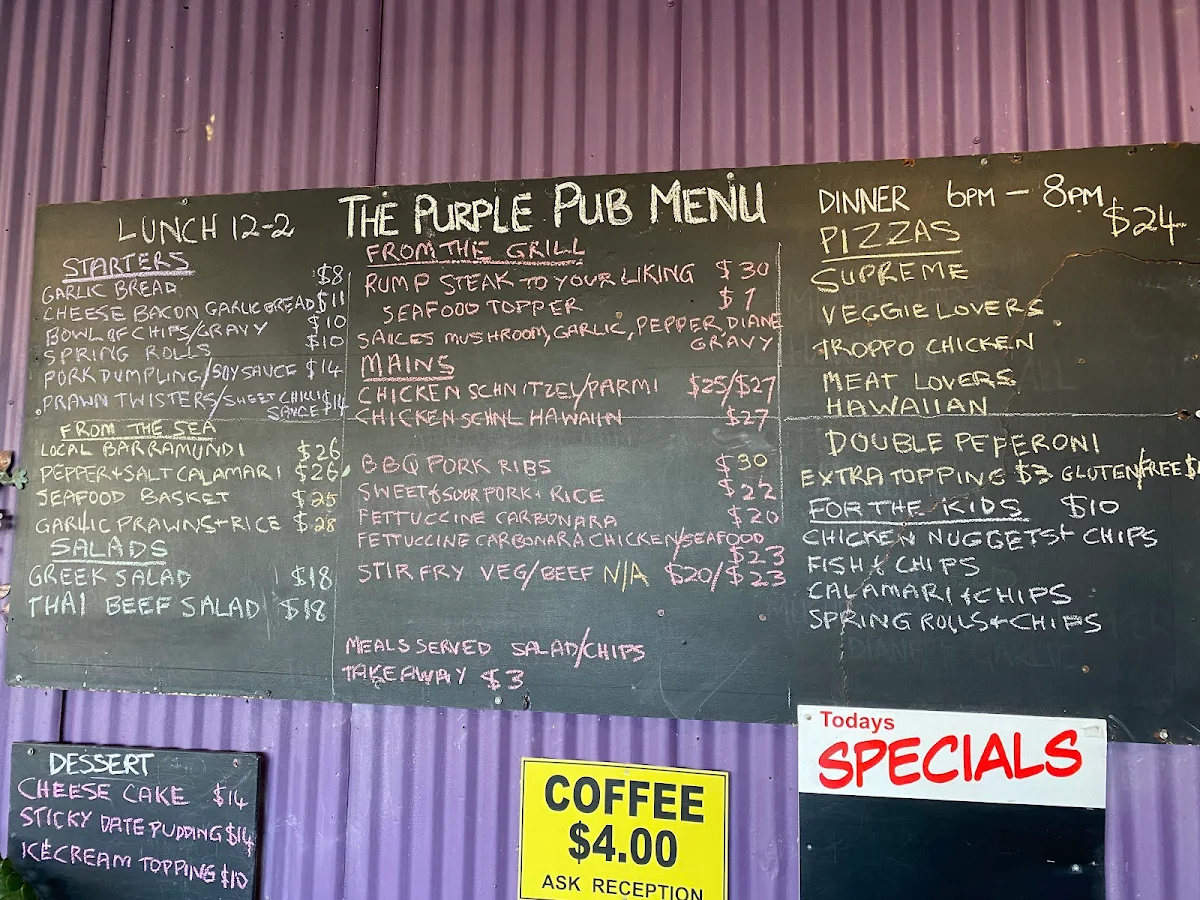 THE PURPLE PUB MENU
LUNCH 12-2
STARTERS
GARLIC BREAD $8
CHEESE BACON GARLIC BREAD $11
BOWL OF CHIPS/GRAVY $10
SPRING ROLLS $10
PORK DUMPLING/SOY SAUCE $14
PRAWN TWISTERS/SWEET CHILLI
SAUCE $14
FROM THE SEA
LOCAL BARRAMUNDI $26
PEPPER+SALT CALAMARI $26
SEAFOOD BASKET $25
GARLIC PRAWNS+RICE $28
SALADS
GREEK SALAD $18
THAI BEEF SALAD $18
FROM THE GRILL
RUMP STEAK TO YOUR LIKING $30
SEAFOOD TOPPER $7
SAUCES MUSHROOM, GARLIC, PEPPER, DIANE
GRAVY
MAINS
CHICKEN SCHNITZEL/PARMI $25/$27
CHICKEN SCHNL HAWAIIN $27
BBQ PORK RIBS $30
SWEET & SOUR PORK + RICE $22
FETTUCCINE CARBONARA $20
FETTUCCINE CARBONARA CHICKEN/SEAFOOD
$23
STIR FRY VEG/BEEF N/A $20/$23
MEALS SERVED SALAD/CHIPS
TAKEAWAY $3
DINNER 6PM - 8PM
PIZZAS $24
SUPREME
VEGGIE LOVERS
TROPPO CHICKEN
MEAT LOVERS
HAWAIIAN
DOUBLE PEPERONI
EXTRA TOPPING $3 GLUTEN/FREE
FOR THE KIDS $10
CHICKEN NUGGETS+ CHIPS
FISH & CHIPS
CALAMARI & CHIPS
SPRING ROLLS + CHIPS
DESSERT
CHEESE CAKE $14
STICKY DATE PUDDING $14
ICECREAM TOPPING $10
COFFEE
$4.00
ASK RECEPTION
Todays
SPECIALS